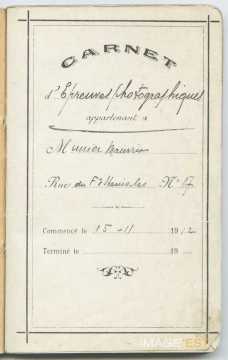 CARNET
d'Epreuves Photographiques
appartenant à
Munier Maurice
Rue du Fg Stanislas N° 67
Commencé le 15-11 1912
Terminé le 19